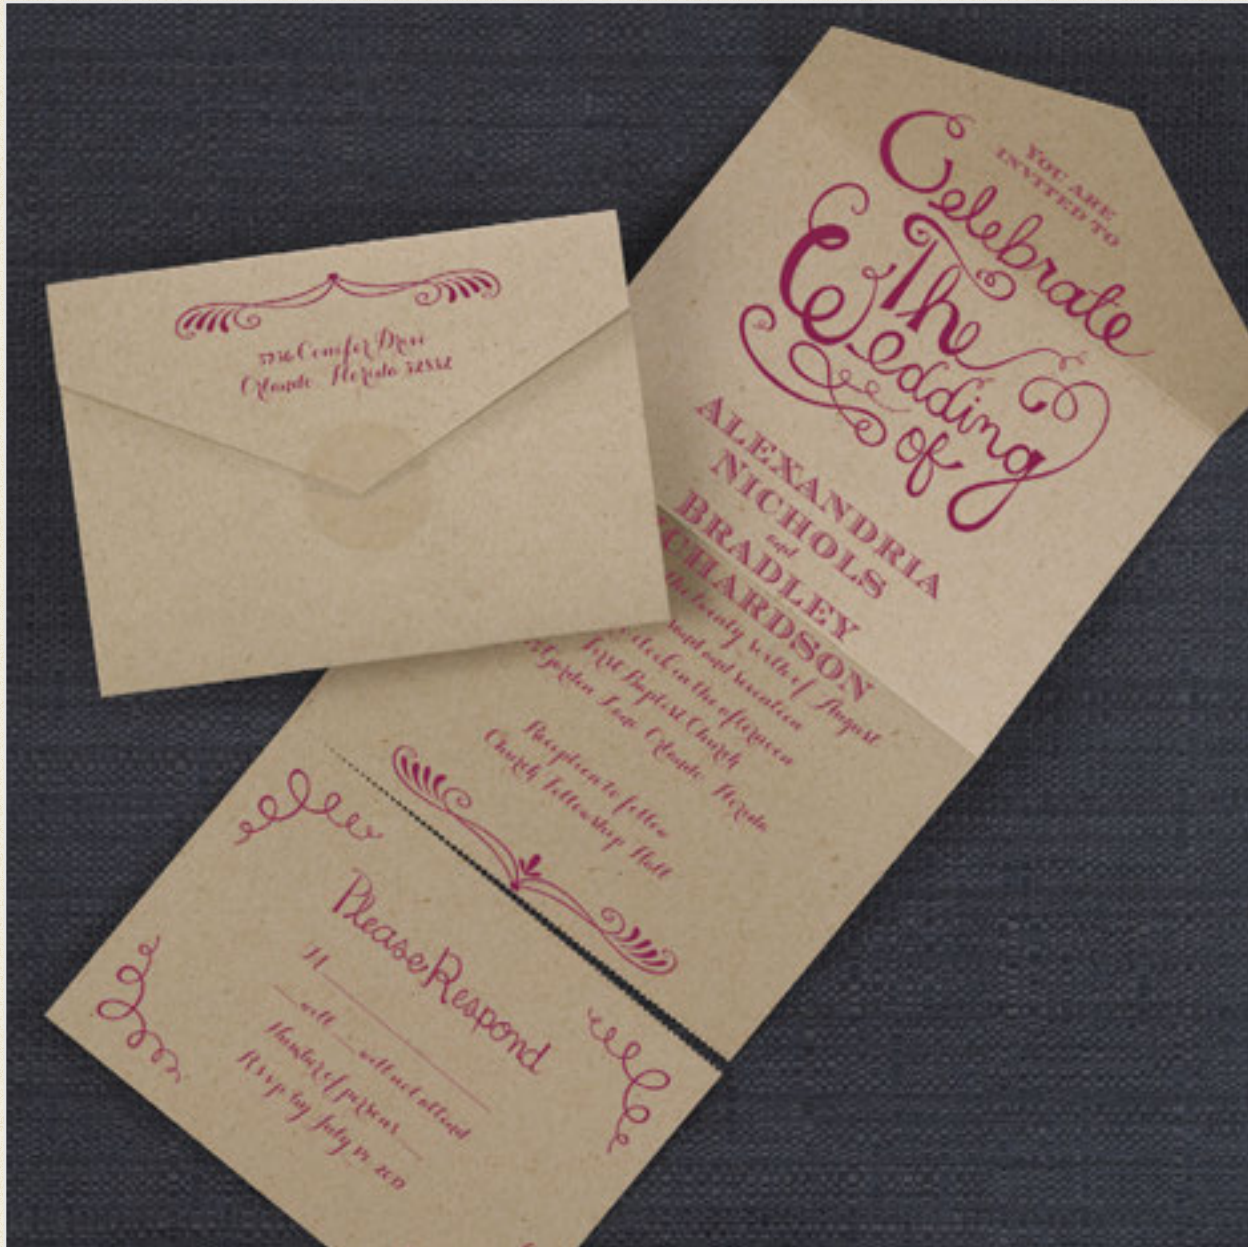 Conifer Drive
Orlando, Florida 32832
YOU ARE
INVITED TO
Celebrate
The
Wedding
of
ALEXANDRIA
NICHOLS
and
BRADLEY
CHARDSON
the twenty sixth of August
and seventeen
in the afternoon
First Baptist Church
Garden Orlando, Florida
Reception to follow
Church Fellowship Hall
Please Respond
M
will will not attend
Number of persons
Rsvp by July